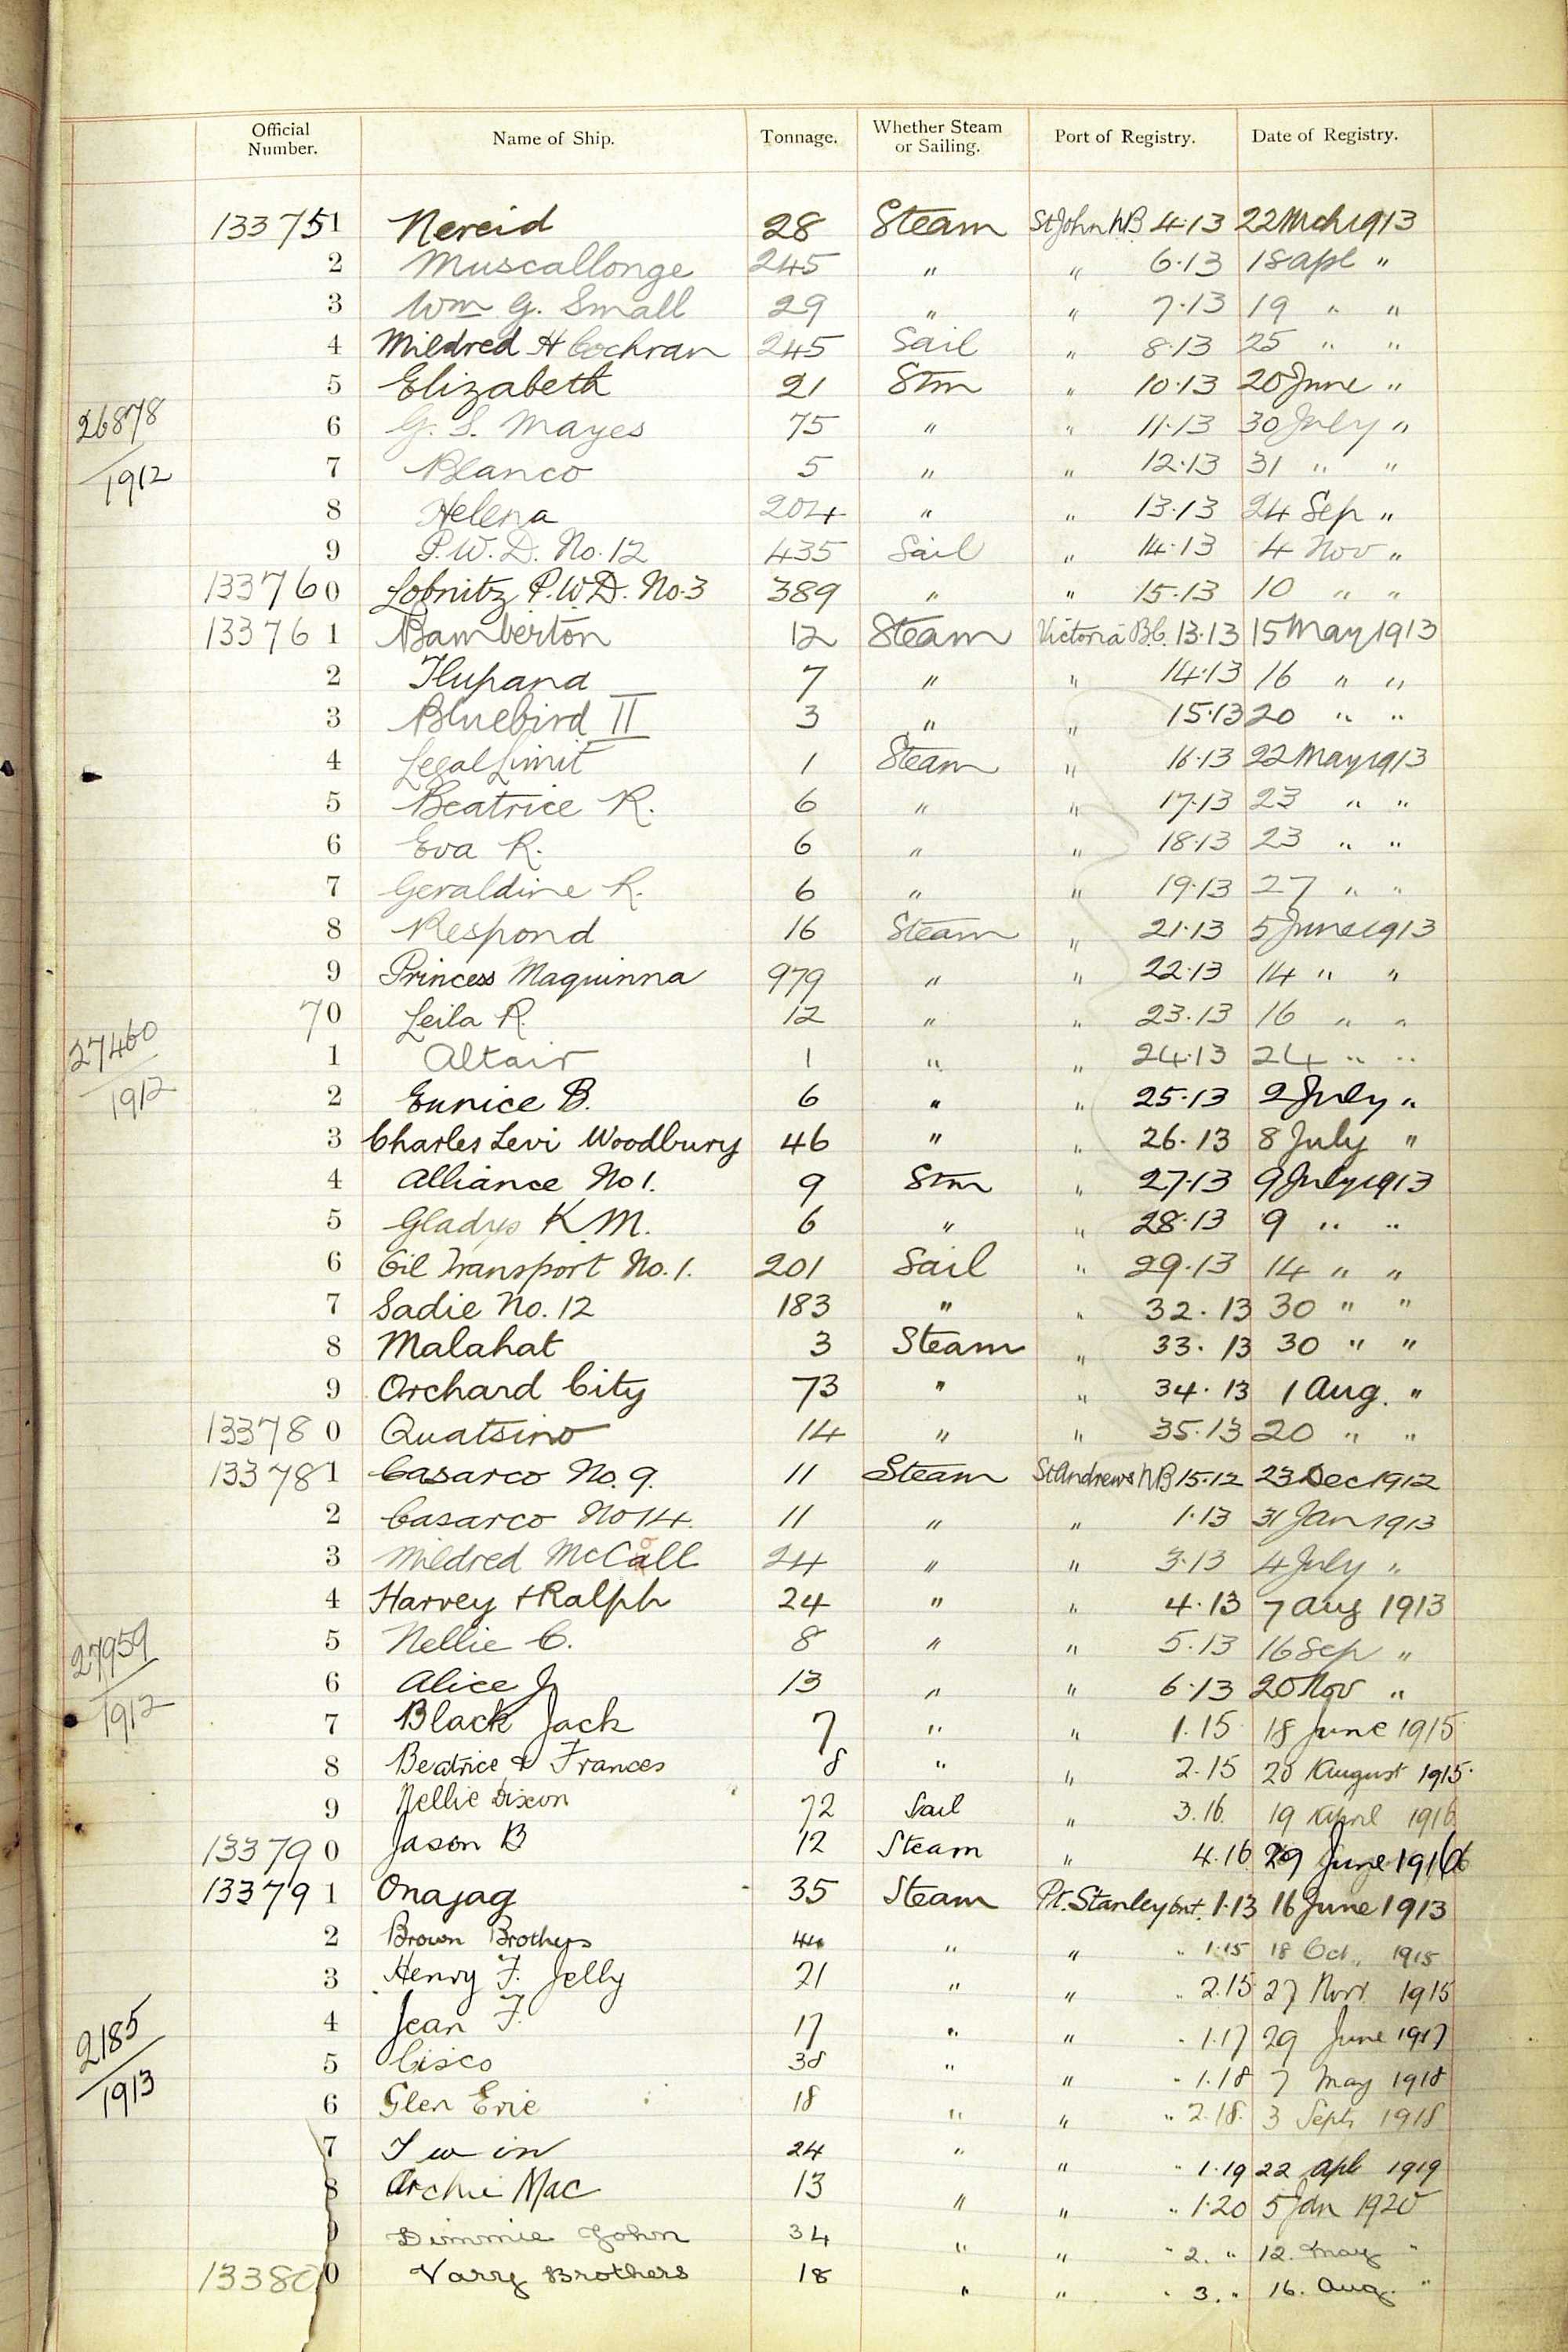 Official Number. Name of Ship. Tonnage. Whether Steam or Sailing. Port of Registry. Date of Registry.
133751 Nereid 28 Steam St John N.B. 4·13 22 Mch 1913
2 Muscallonge 245 " " 6·13 18 Apl "
3 Wm G. Small 29 " " 7·13 19 " "
4 Mildred H Cochran 245 Sail " 8·13 25 " "
5 Elizabeth 21 Stm " 10·13 20 June "
26878
1912
6 G. S. Mayes 75 " " 11·13 30 July "
7 Blanco 5 " " 12·13 31 " "
8 Helena 204 " " 13·13 24 Sep "
9 P.W.D. No. 12 435 Sail " 14·13 4 Nov "
133760 Lobnitz P.W.D. No. 3 389 " " 15·13 10 " "
133761 Bamberton 12 Steam Victoria B.C. 13·13 15 May 1913
2 Tlupana 7 " " 14·13 16 " "
3 Bluebird II 3 " " 15·13 20 " "
4 Legal Limit 1 Steam " 16·13 22 May 1913
5 Beatrice R. 6 " " 17·13 23 " "
6 Eva R. 6 " " 18·13 23 " "
7 Geraldine R. 6 " " 19·13 27 " "
8 Respond 16 Steam " 21·13 5 June 1913
9 Princess Maquinna 979 " " 22·13 14 " "
70 Leila R. 12 " " 23·13 16 " "
27460
1912
1 Altair 1 " " 24·13 24 " "
2 Eunice B. 6 " " 25·13 2 July "
3 Charles Levi Woodbury 46 " " 26·13 8 July "
4 Alliance No 1. 9 Stm " 27·13 9 July 1913
5 Gladys K M. 6 " " 28·13 9 " "
6 Oil Transport No. 1. 201 Sail " 29·13 14 " "
7 Sadie No. 12 183 " " 32·13 30 " "
8 Malahat 3 Steam " 33·13 30 " "
9 Orchard City 73 " " 34·13 1 Aug. "
133780 Quatsino 14 " " 35·13 20 " "
133781 Casarco No. 9. 11 Steam St Andrews NB 15·12 23 Dec 1912
2 Casarco No 14. 11 " " 1·13 31 Jan 1913
3 Mildred McCall 24 " " 3·13 4 July "
4 Harvey + Ralph 24 " " 4·13 7 Aug 1913
27959
1912
5 Nellie C. 8 " " 5·13 16 Sep "
6 Alice J 13 " " 6·13 20 Nov "
7 Black Jack 7 " " 1.15 18 June 1915
8 Beatrice & Frances 8 " " 2.15 August 1915
9 Nellie Dixon 72 Sail " 3.16. 19 April 1916
133790 Jason B 12 Steam " 4.16 29 June 1916
133791 Onajag 35 Steam Pt. Stanley Ont. 1·13 16 June 1913
2 Brown Brothers " " " 1·15 18 Oct. 1915
3 Henry F. Jelly 21 " " " 2.15 27 Novr 1915
2185
1913
4 Jean F. 17 " " " 1·17 29 June 1917
5 Cisco 38 " " " 1.18 7 May 1918
6 Glen Erie 18 " " " 2.18. 3 Sept. 1918
7 Twin 24 " " " 1·19 22 Apl 1919
8 Archie Mac 13 " " " 1·20 5 Jan 1920
9 John 34 " " " 2. " 12. May "
133800 Varry Brothers 18 " " " 3. " 16. Aug. "